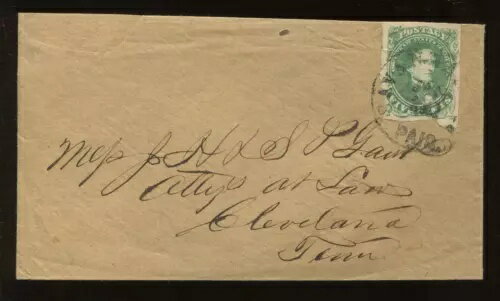 POSTAGE
PAID
Messrs J H & S P Gaut
Attys at Law
Cleveland
Tenn